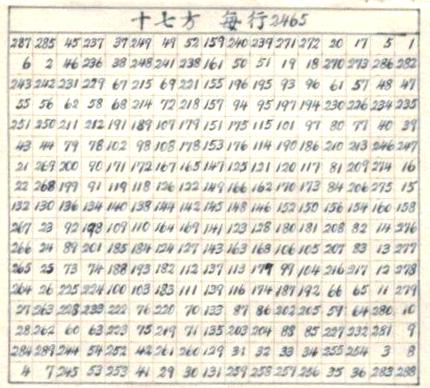 十七方 每行2465
287 285 45 237 37 249 49 52 159 240 239 271 272 20 17 5 1
6 2 46 236 38 248 241 238 161 50 51 19 18 270 273 286 282
243 242 231 229 67 215 69 221 155 196 195 93 96 61 57 48 47
55 56 62 58 68 214 72 218 157 94 95 197 194 230 226 234 235
251 250 211 212 191 189 107 179 151 175 115 101 97 80 77 40 39
43 44 79 78 102 98 108 178 153 176 114 190 186 210 213 246 247
21 269 200 90 171 172 167 165 147 125 121 120 117 81 209 274 16
22 268 199 91 119 118 126 122 149 166 162 170 173 84 206 275 15
132 130 136 134 140 138 144 142 145 148 146 152 150 156 154 160 158
267 23 92 198 109 110 164 169 141 123 128 180 181 208 82 14 276
266 24 89 201 185 184 124 127 143 163 168 106 105 207 83 13 277
265 25 73 74 188 193 182 112 137 113 177 99 104 216 217 12 278
264 26 225 224 100 103 183 111 139 116 174 187 192 66 65 11 279
27 263 228 233 222 76 220 70 133 87 86 202 205 59 64 280 10
28 262 60 63 223 75 219 71 135 203 204 88 85 227 232 281 9
284 289 244 54 252 42 261 260 129 31 32 33 34 255 254 3 8
4 7 245 53 253 41 29 30 131 259 258 257 256 35 36 283 288